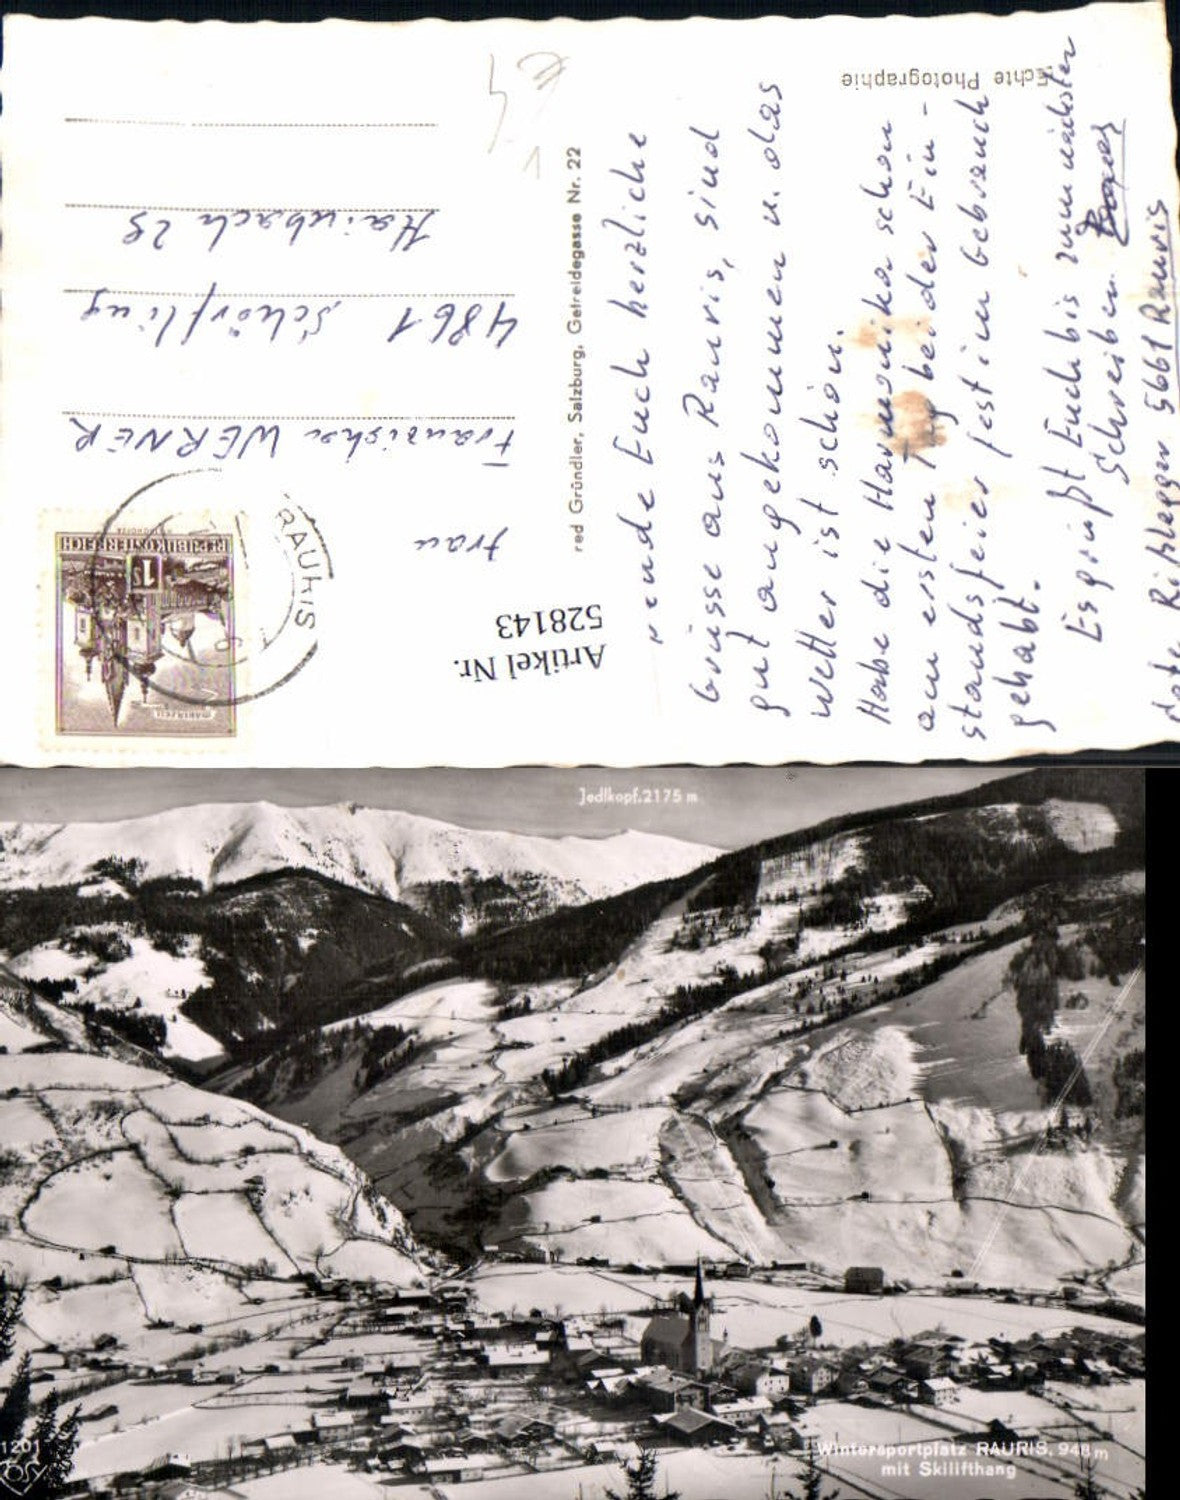 Echte Photographie
red Gründler, Salzburg, Getreidegasse Nr. 22
Artikel Nr.
528143
MARIAZELL
1S
REPUBLIK ÖSTERREICH
RAURIS
Frau
Franziska WERNER
4861 Schörfling
Hainbach 28
Euch herzliche
Grüsse aus Rauris, sind
gut angekommen u. das
Wetter ist schön.
Habe die Harmonika schon
am ersten Tag bei der Ein-
standsfeier fest im Gebrauch
gehabt.
Es grüßt Euch bis zum nächsten
Schreiben
5661 Rauris
Jedlkopf, 2175 m
1201
Wintersportplatz RAURIS, 948 m
mit Skilifthang